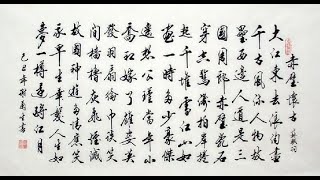 赤壁懷古 蘇軾詞
大江東去浪淘盡
千古風流人物故
壘西邊人道是三
國周郎赤壁亂石
穿空驚濤拍岸捲
起千堆雪江山如
畫一時多少豪傑
遙想公瑾當年小
喬初嫁了雄姿英
發羽扇綸巾談笑
間檣櫓灰飛煙滅
故國神遊多情應笑
我早生華髮人生如
夢一樽還酹江月
己丑年 書